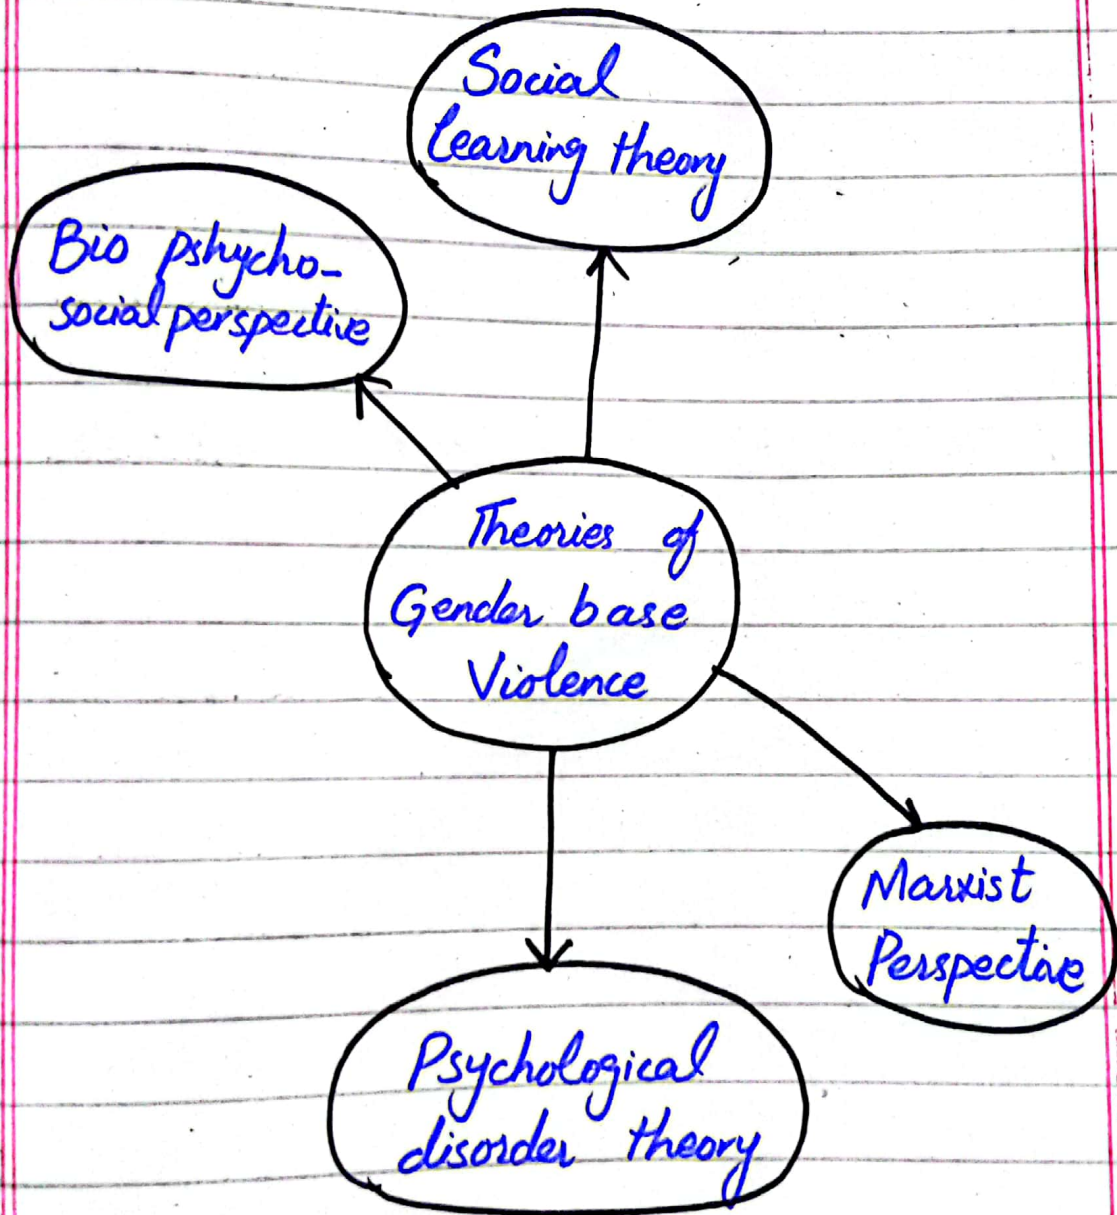 Social
learning theory
Bio pshycho-
social perspective
Theories of
Gender base
Violence
Marxist
Perspective
Psychological
disorder theory